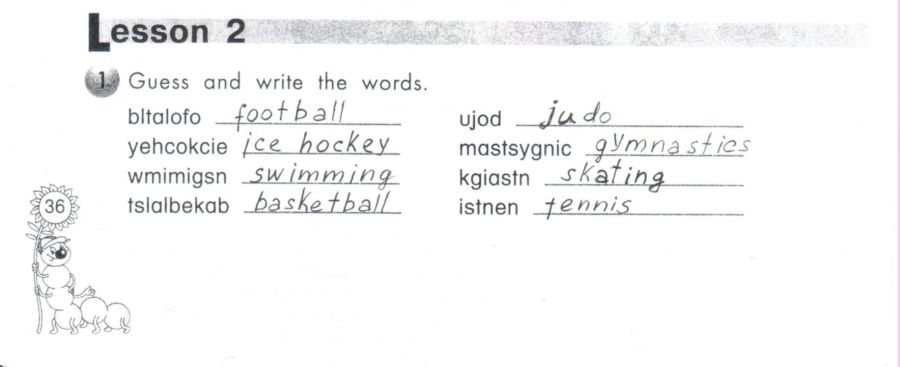 Lesson 2
1. Guess and write the words.
bltalofo football
yehcokcie ice hockey
wmimigsn swimming
tslalbekab basketball
ujod judo
mastsygnic gymnastics
kgiastn skating
istnen tennis
36